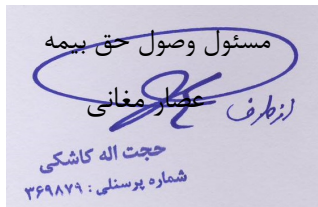 مسئول وصول حق بیمه
عصار مغانی
از طرف
حجت اله کاشکی
شماره پرسنلی : ۳۶۹۸۷۹